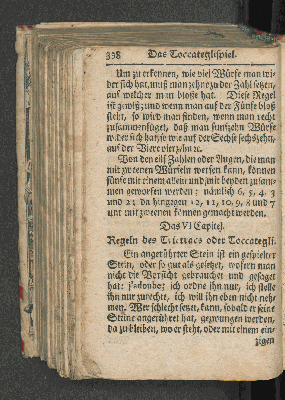 338 Das Toccateglispiel.
Um zu erkennen, wie viel Würfe man wi-
der sich hat, muß man zehn zu der Zahl setzen,
auf welcher man bloße hat. Diese Regel
ist gewiß; und wenn man auf der Fünfe bloß
steht, so wird man finden, wenn man recht
zusammenfüget, daß man funfzehn Würfe
wider sich hat; so wie auf der Sechse sechszehn,
auf der Viere vierzehn ꝛc.
Von den eilf Zahlen oder Augen, die man
mit zweenen Würfeln werfen kann, können
fünfe mit einem allein und mit beyden zusam-
men geworfen werden: nämlich 6, 5, 4, 3
und 2; da hingegen 12, 11, 10, 9, 8 und 7
nur mit zweenen können gemacht werden.
Das VI Capitel.
Regeln des Trictracs oder Toccategli.
Ein angerührter Stein ist ein gespielter
Stein, oder so gut als gesetzet, wofern man
nicht die Vorsicht gebrauchet und gesaget
hat: j'adoube; ich ordne ihn nur, ich stelle
ihn nur zurechte, ich will ihn eben nicht neh-
men. Wer schlecht setzet, kann, sobald er seine
Steine angerühret hat, gezwungen werden,
da zu bleiben, wo er steht, oder mit einem ein-
zigen